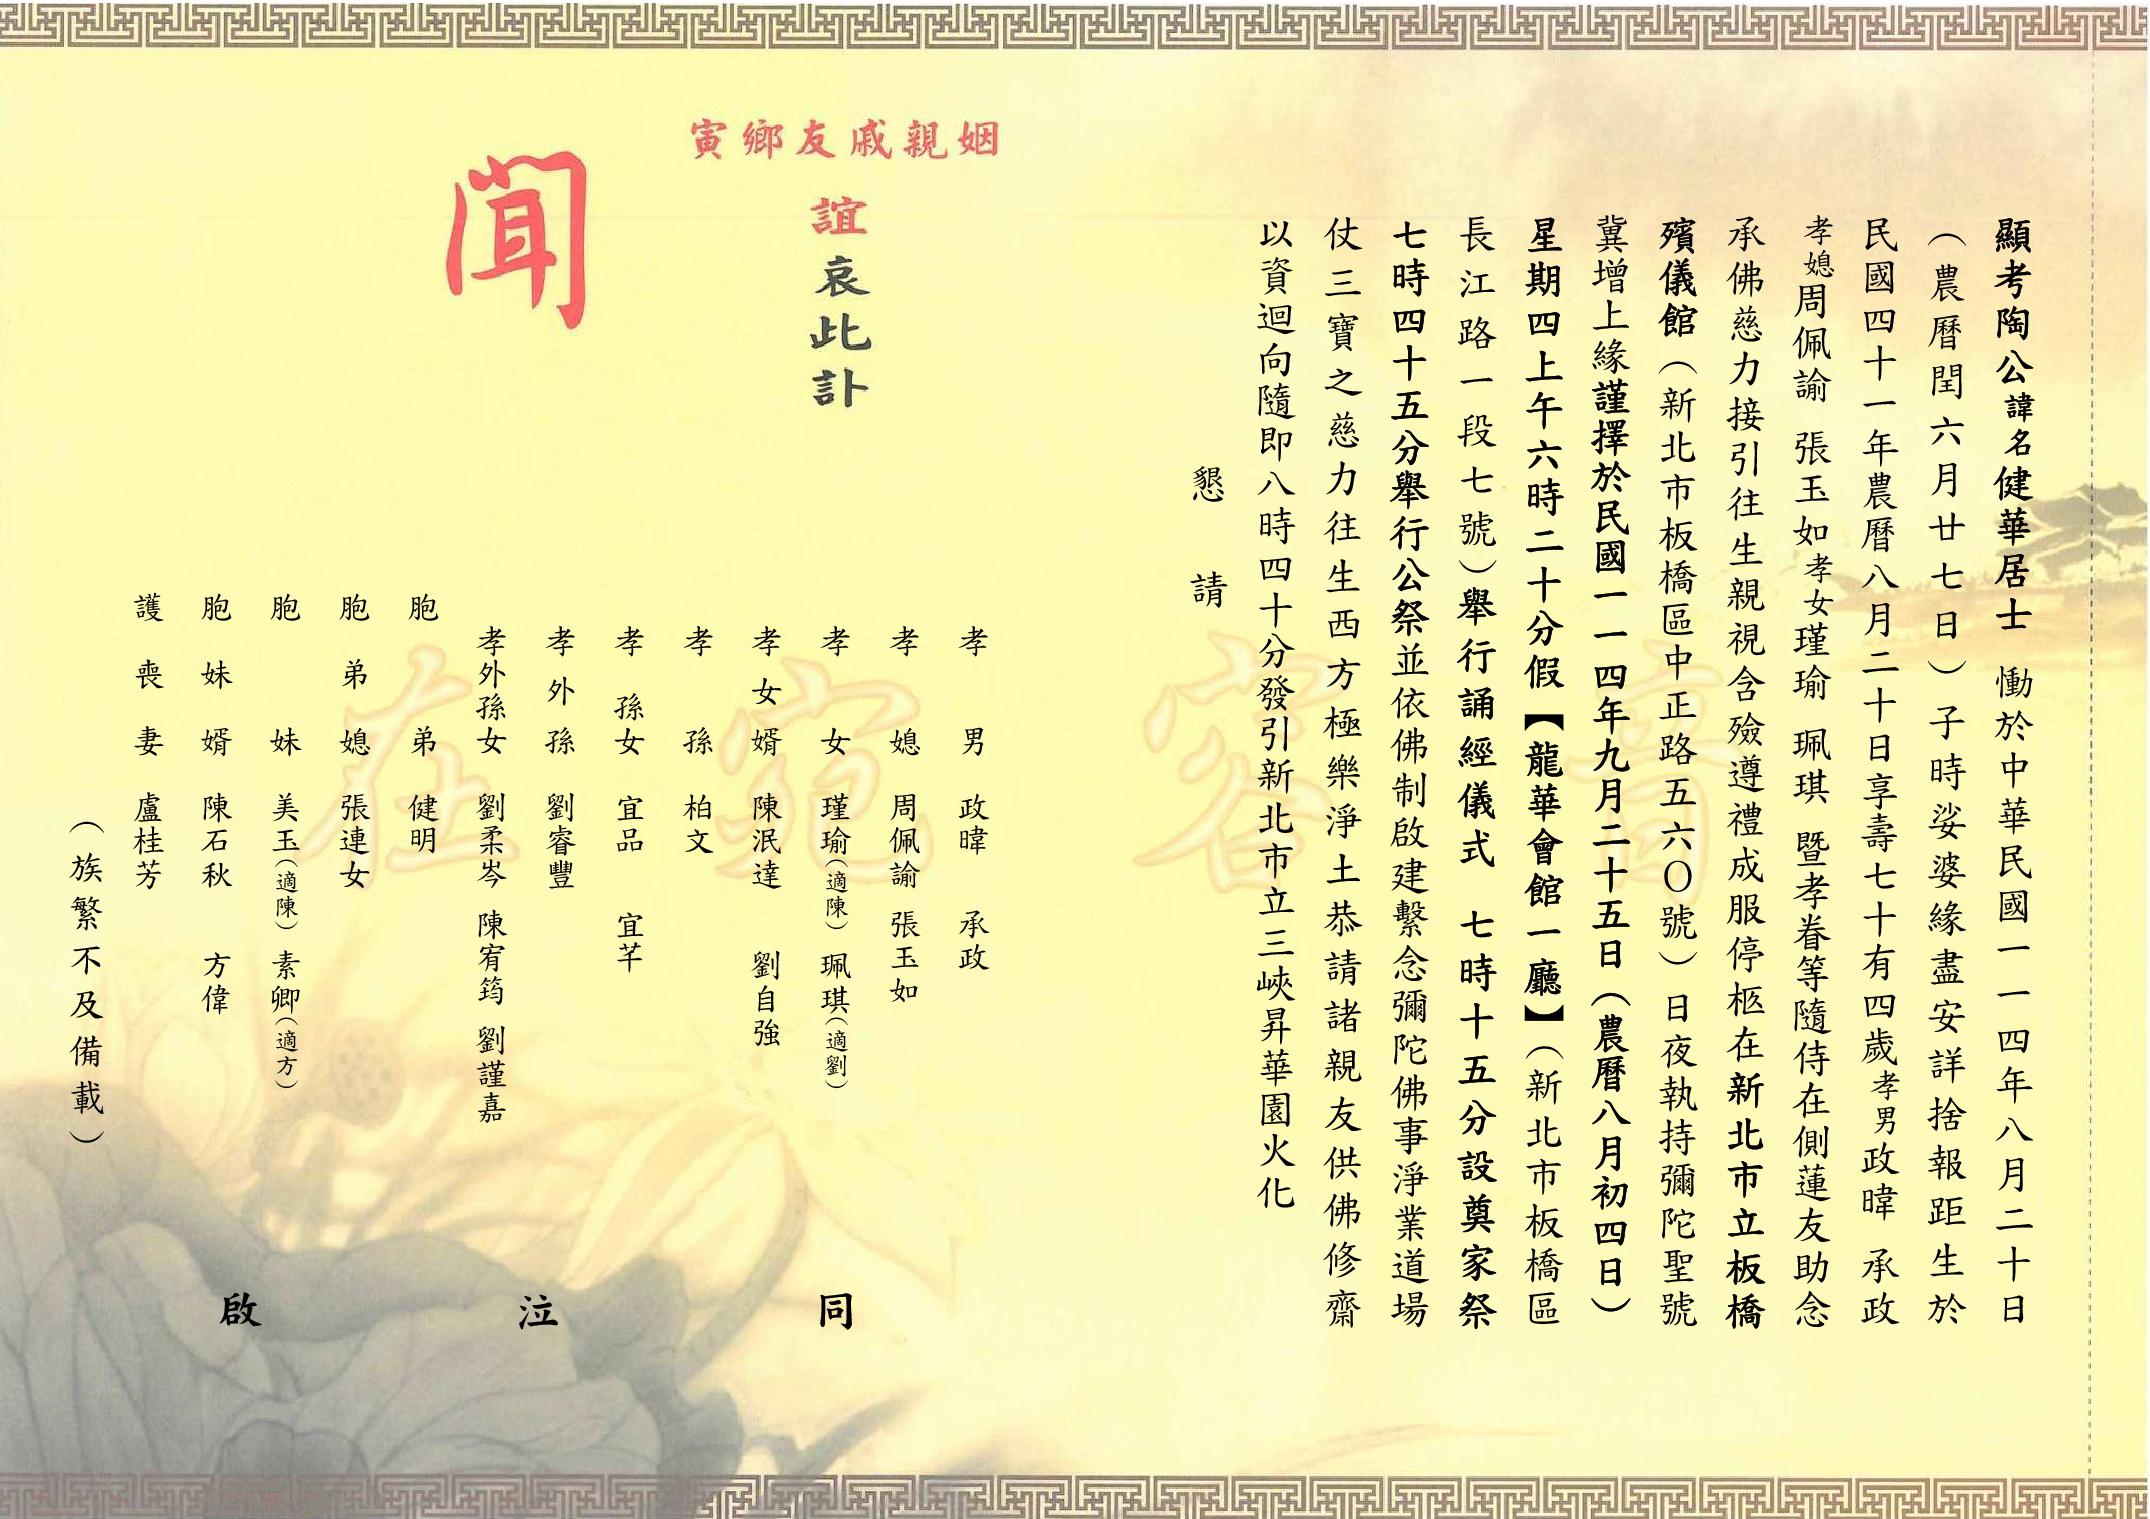 顯考陶公諱名健華居士　慟於中華民國一一四年八月二十日
（農曆閏六月廿七日）子時娑婆緣盡安詳捨報距生於
民國四十一年農曆八月二十日享壽七十有四歲孝男政暐　承政
孝媳周佩諭　張玉如孝女瑾瑜　珮琪　暨孝眷等隨侍在側蓮友助念
承佛慈力接引往生親視含殮遵禮成服停柩在新北市立板橋
殯儀館（新北市板橋區中正路五六〇號）日夜執持彌陀聖號
冀增上緣謹擇於民國一一四年九月二十五日（農曆八月初四日）
星期四上午六時二十分假【龍華會館一廳】（新北市板橋區
長江路一段七號）舉行誦經儀式　七時十五分設奠家祭
七時四十五分舉行公祭並依佛制啟建繫念彌陀佛事淨業道場
仗三寶之慈力往生西方極樂淨土恭請諸親友供佛修齋
以資迴向隨即八時四十分發引新北市立三峽昇華園火化
懇請
姻親戚友鄉寅
誼哀此訃
聞
孝男　政暐　承政
孝媳　周佩諭　張玉如
孝女　瑾瑜（適陳）珮琪（適劉）
孝女婿　陳泯達　劉自強
孝孫　柏文
孝孫女　宜品　宜芊
孝外孫　劉睿豐
孝外孫女　劉柔岑　陳宥筠　劉謹嘉
胞弟　健明
胞弟媳　張連女
胞妹　美玉（適陳）素卿（適方）
胞妹婿　陳石秋　方偉
護喪妻　盧桂芳
（族繁不及備載）
同泣啟
音容宛在